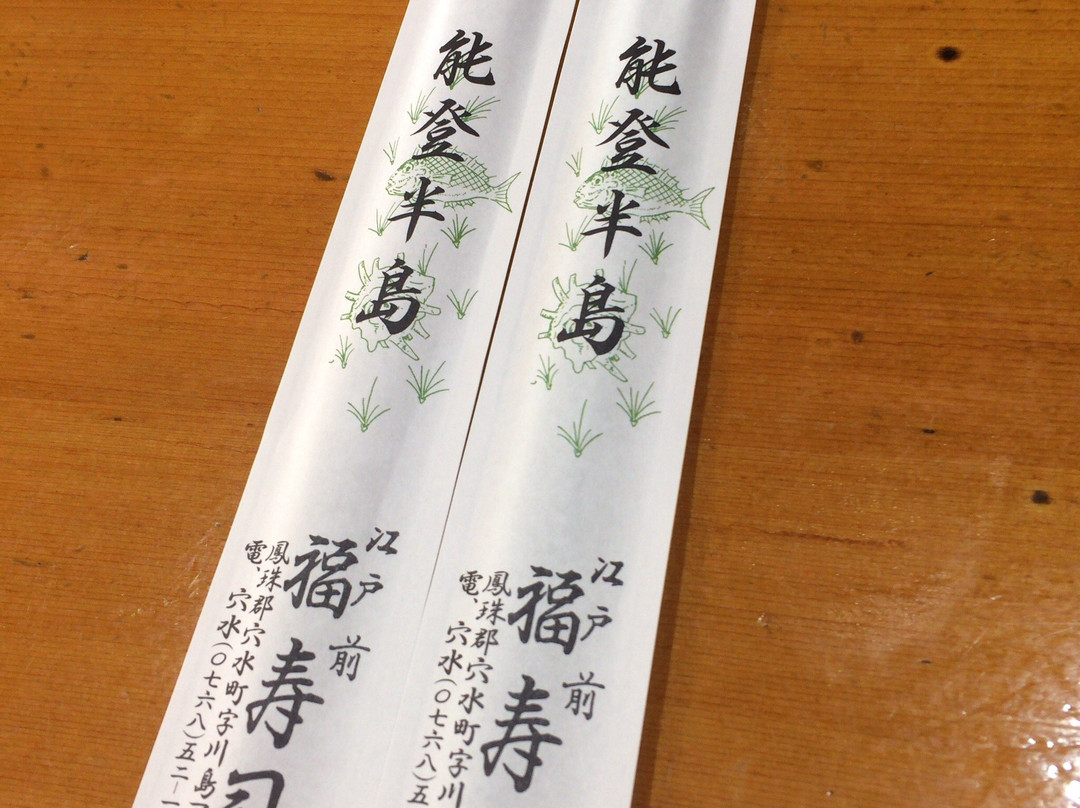 能登半島
江戸前
福寿司
鳳珠郡穴水町字川島
電、穴水(〇七六八)五二ー
能登半島
江戸前
福寿
鳳珠郡穴水町字川
電、穴水(〇七六八)五